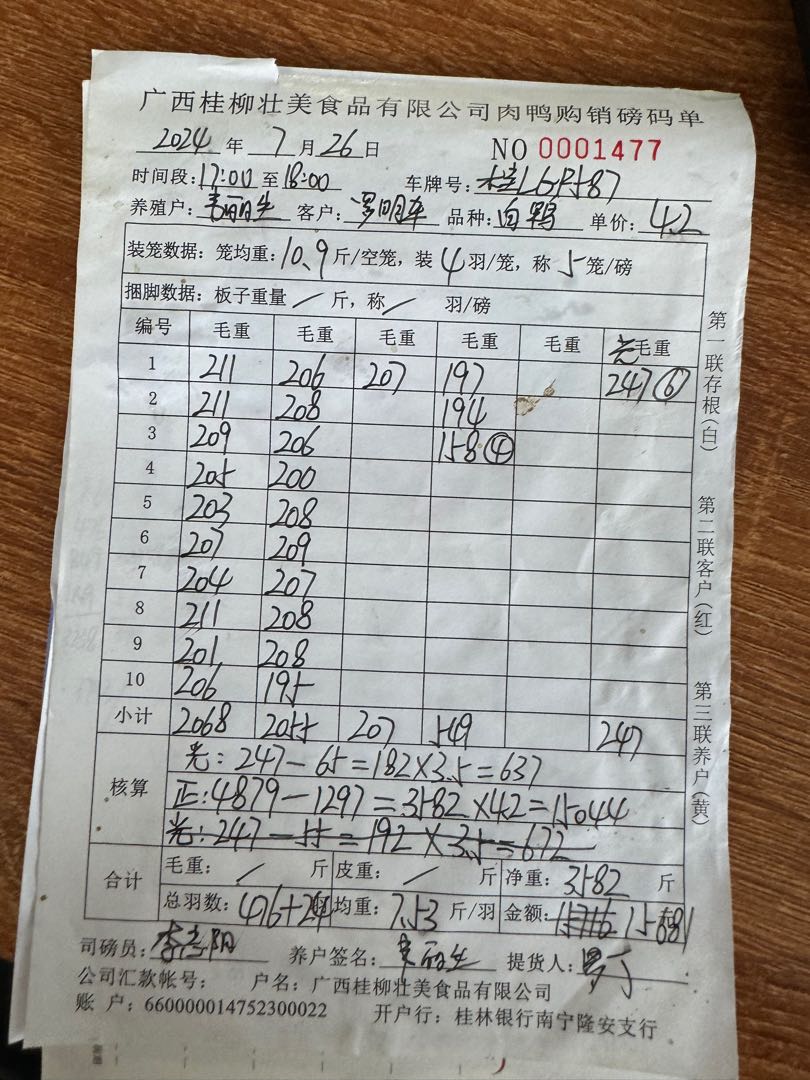 广西桂柳壮美食品有限公司肉鸭购销磅码单
2024 年 7 月 26 日 NO 0001477
时间段: 17:00 至 18:00 车牌号: 桂L6R587
养殖户: 韦丽生 客户: 罗明车 品种: 白鸭 单价: 4.2
装笼数据: 笼均重: 10.9 斤/空笼, 装 4 羽/笼, 称 5 笼/磅
捆脚数据: 板子重量 / 斤, 称 / 羽/磅
编号 毛重 毛重 毛重 毛重 毛重 光毛重
1 211 206 207 197 247⑥
2 211 208 194
3 209 206 158④
4 205 200
5 203 208
6 207 209
7 204 207
8 211 208
9 201 208
10 206 195
小计 2068 2055 207 549 247
核算
光: 247-65=182×3.5=637
正: 4879-1297=3582×4.2=15044
光: 247-55=192×3.5=672
合计
毛重: / 斤 皮重: / 斤 净重: 3582 斤
总羽数: 476+24 羽 均重: 7.53 斤/羽 金额: 15716 15681
司磅员: 养户签名: 韦丽生 提货人:
公司汇款帐号: 户名: 广西桂柳壮美食品有限公司
账 户: 660000014752300022 开户行: 桂林银行南宁隆安支行
第一联存根(白)
第二联客户(红)
第三联养户(黄)